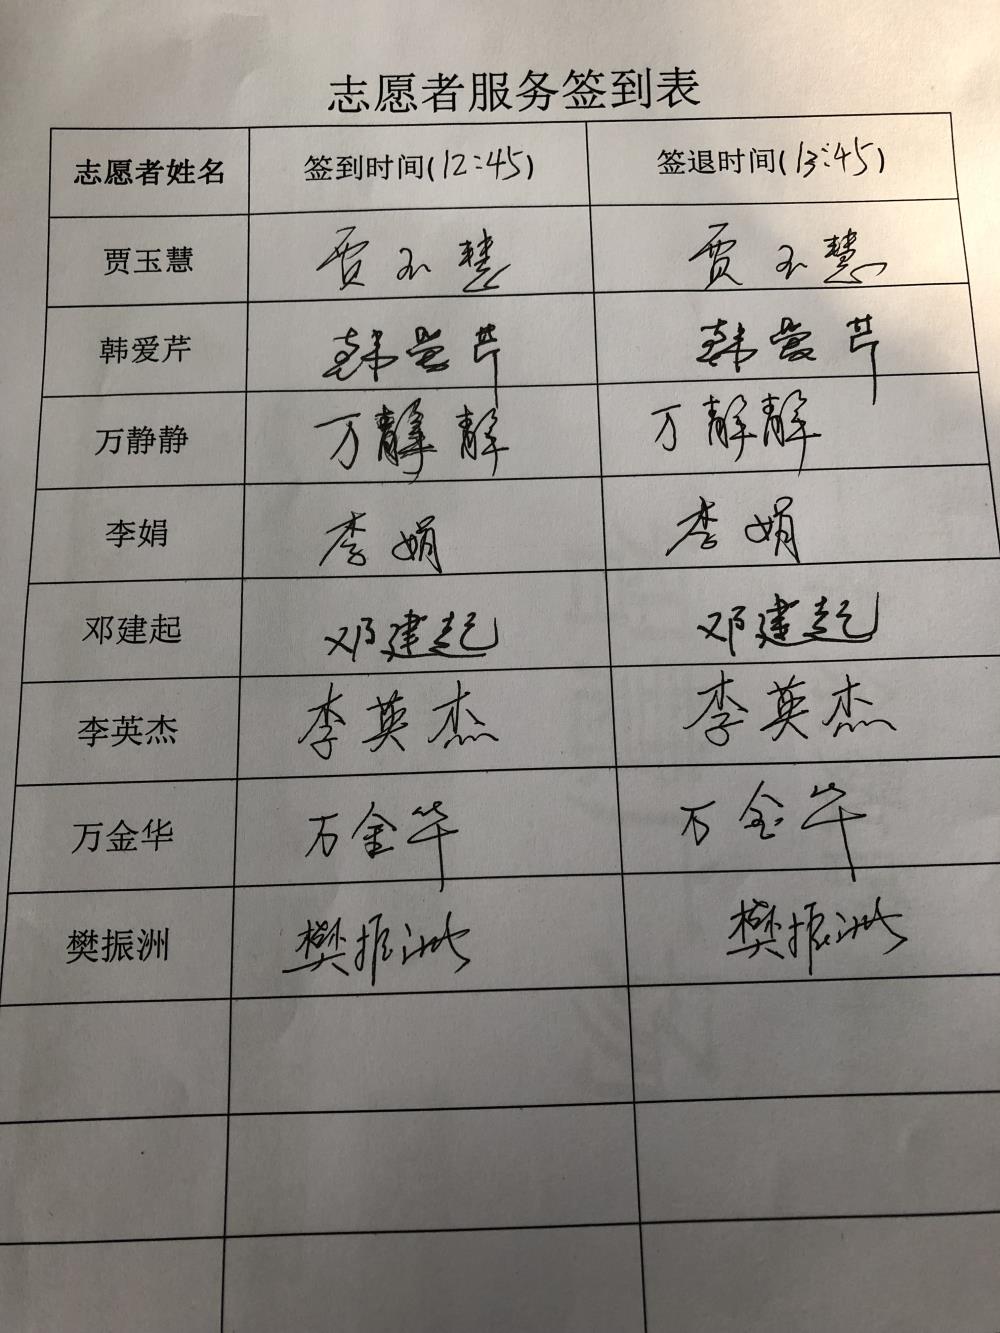 志愿者服务签到表
志愿者姓名 签到时间(12:45) 签退时间(13:45)
贾玉慧 贾玉慧 贾玉慧
韩爱芹 韩爱芹 韩爱芹
万静静 万静静 万静静
李娟 李娟 李娟
邓建起 邓建起 邓建起
李英杰 李英杰 李英杰
万金华 万金华 万金华
樊振洲 樊振洲 樊振洲